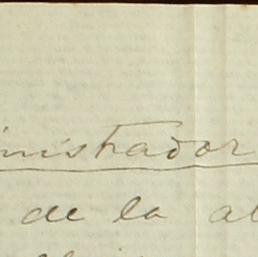 inistrador
de la al